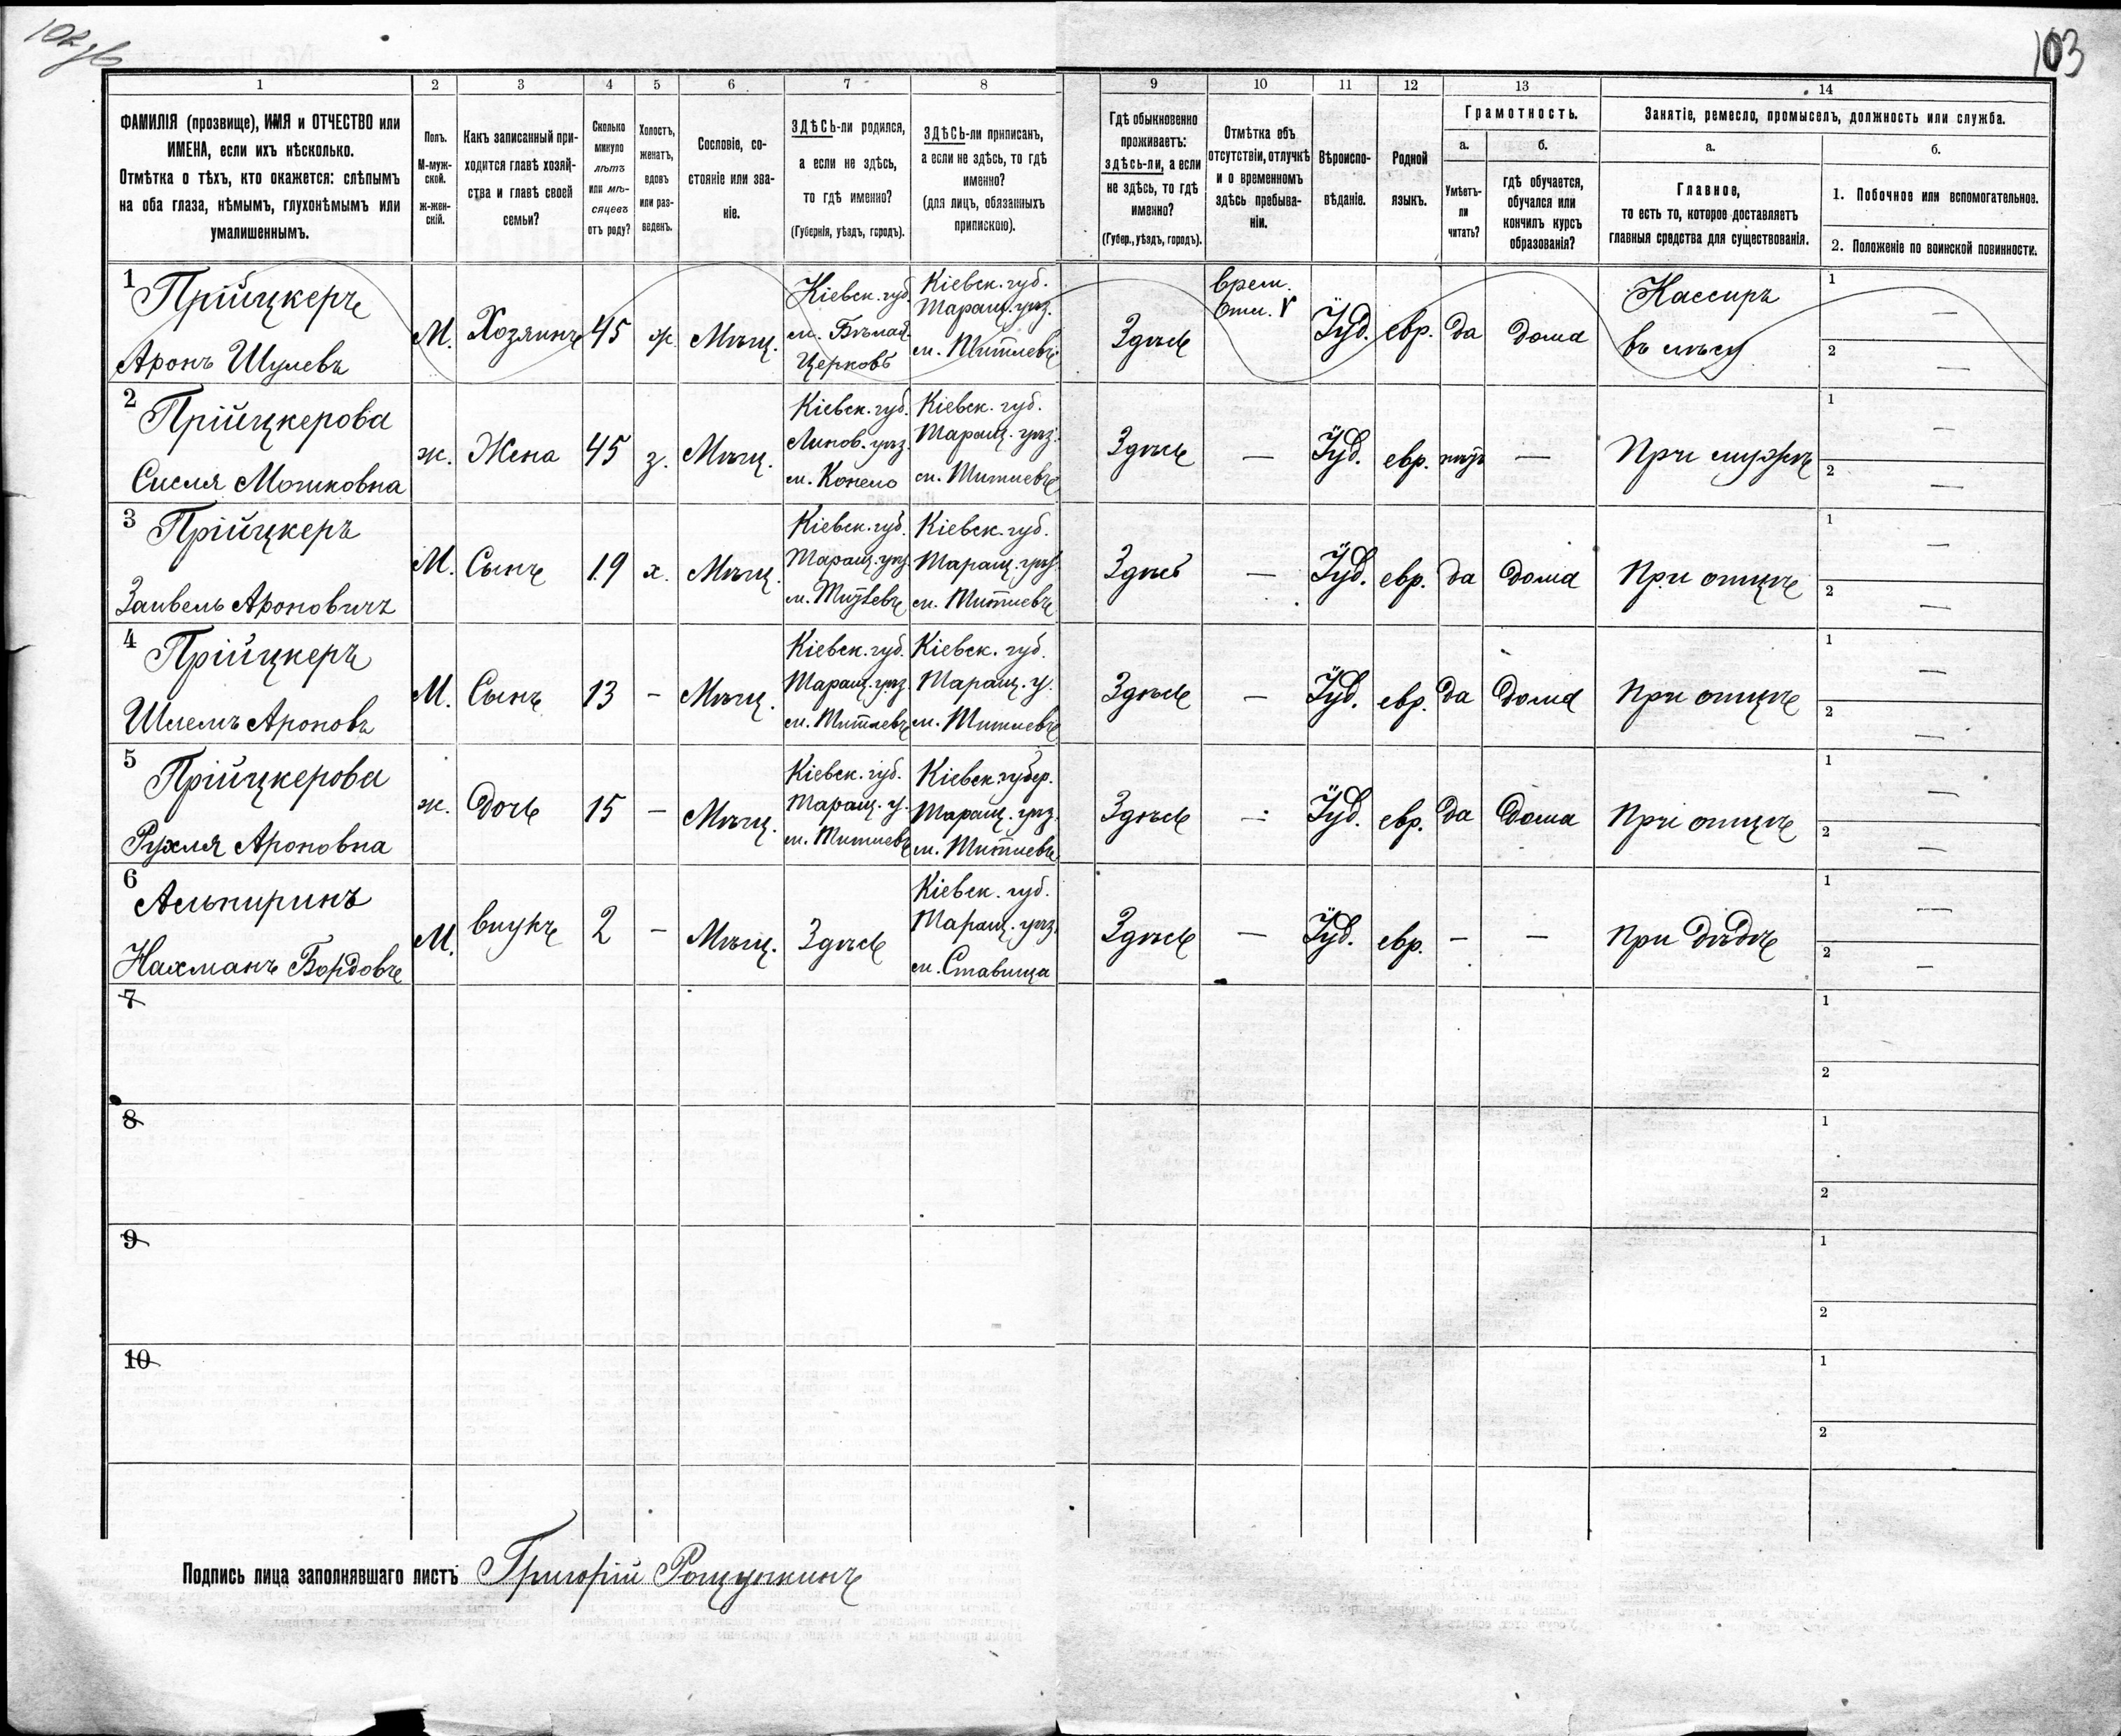 103
1 2 3 4 5 6 7 8 9 10 11 12 13 14
ФАМИЛІЯ (прозвище), ИМЯ и ОТЧЕСТВО или
ИМЕНА, если ихъ нѣсколько.
Отмѣтка о тѣхъ, кто окажется: слѣпымъ
на оба глаза, нѣмымъ, глухонѣмымъ или
умалишеннымъ.
Полъ.
М-муж-
ской.
ж-жен-
скій.
Какъ записанный при-
ходится главѣ хозяй-
ства и главѣ своей
семьи?
Сколько
минуло
лѣтъ
или мѣ-
сяцевъ
отъ роду?
Холостъ,
женатъ,
вдовъ
или раз-
веденъ.
Сословіе, со-
стояніе или зва-
ніе.
ЗДѢСЬ-ли родился,
а если не здѣсь,
то гдѣ именно?
(Губернія, уѣздъ, городъ).
ЗДѢСЬ-ли приписанъ,
а если не здѣсь, то гдѣ
именно?
(для лицъ, обязанныхъ
припискою).
Гдѣ обыкновенно
проживаетъ:
здѣсь-ли, а если
не здѣсь, то гдѣ
именно?
(Губер., уѣздъ, городъ).
Отмѣтка объ
отсутствіи, отлучкѣ
и о временномъ
здѣсь пребыва-
ніи.
Вѣроиспо-
вѣданіе.
Родной
языкъ.
Грамотность.
а.
Умѣетъ-
ли
читать?
б.
гдѣ обучается,
обучался или
кончилъ курсъ
образованія?
Занятіе, ремесло, промыселъ, должность или служба.
а.
Главное,
то есть то, которое доставляетъ
главныя средства для существованія.
б.
1. Побочное или вспомогательное.
2. Положеніе по воинской повинности.
1 Прійцкеръ
Аронъ Шулевъ
М.
Хозяинъ
45
ж.
Мѣщ.
Кіевск. губ.
м. Бѣлая
Церковь
Кіевск. губ.
Таращ. уѣз.
м. Титіевъ
Здѣсь
врем.
отл.
Іуд.
евр.
да
дома
Кассиръ
въ лѣсу
1 —
2 —
2 Прійцкерова
Сисля Мошковна
ж.
Жена
45
з.
Мѣщ.
Кіевск. губ.
Липов. уѣз.
м. Конело
Кіевск. губ.
Таращ. уѣз.
м. Титіевъ
Здѣсь
—
Іуд.
евр.
нѣтъ
—
При мужѣ
1 —
2 —
3 Прійцкеръ
Зайвель Ароновичъ
М.
Сынъ
19
х.
Мѣщ.
Кіевск. губ.
Таращ. уѣз.
м. Титіевъ
Кіевск. губ.
Таращ. уѣз.
м. Титіевъ
Здѣсь
—
Іуд.
евр.
да
дома
При отцѣ
1 —
2 —
4 Прійцкеръ
Шлемъ Ароновъ
М.
Сынъ
13
-
Мѣщ.
Кіевск. губ.
Таращ. уѣз.
м. Титіевъ
Кіевск. губ.
Таращ. у.
м. Титіевъ
Здѣсь
—
Іуд.
евр.
да
дома
при отцѣ
1 —
2 —
5 Прійцкерова
Рухля Ароновна
ж.
Дочь
15
-
Мѣщ.
Кіевск. губ.
Таращ. у.
м. Титіевъ
Кіевск. губер.
Таращ. уѣз.
м. Титіевъ
Здѣсь
—
Іуд.
евр.
да
дома
при отцѣ
1 —
2 —
6 Альпиринъ
Нахманъ
М.
внукъ
2
-
Мѣщ.
Здѣсь
Кіевск. губ.
Таращ. уѣз.
м. Ставища
Здѣсь
—
Іуд.
евр.
-
—
при дѣдѣ
1 —
2 —
7
1
2
8
1
2
9
1
2
10
1
2
Подпись лица заполнявшаго листъ Григорій